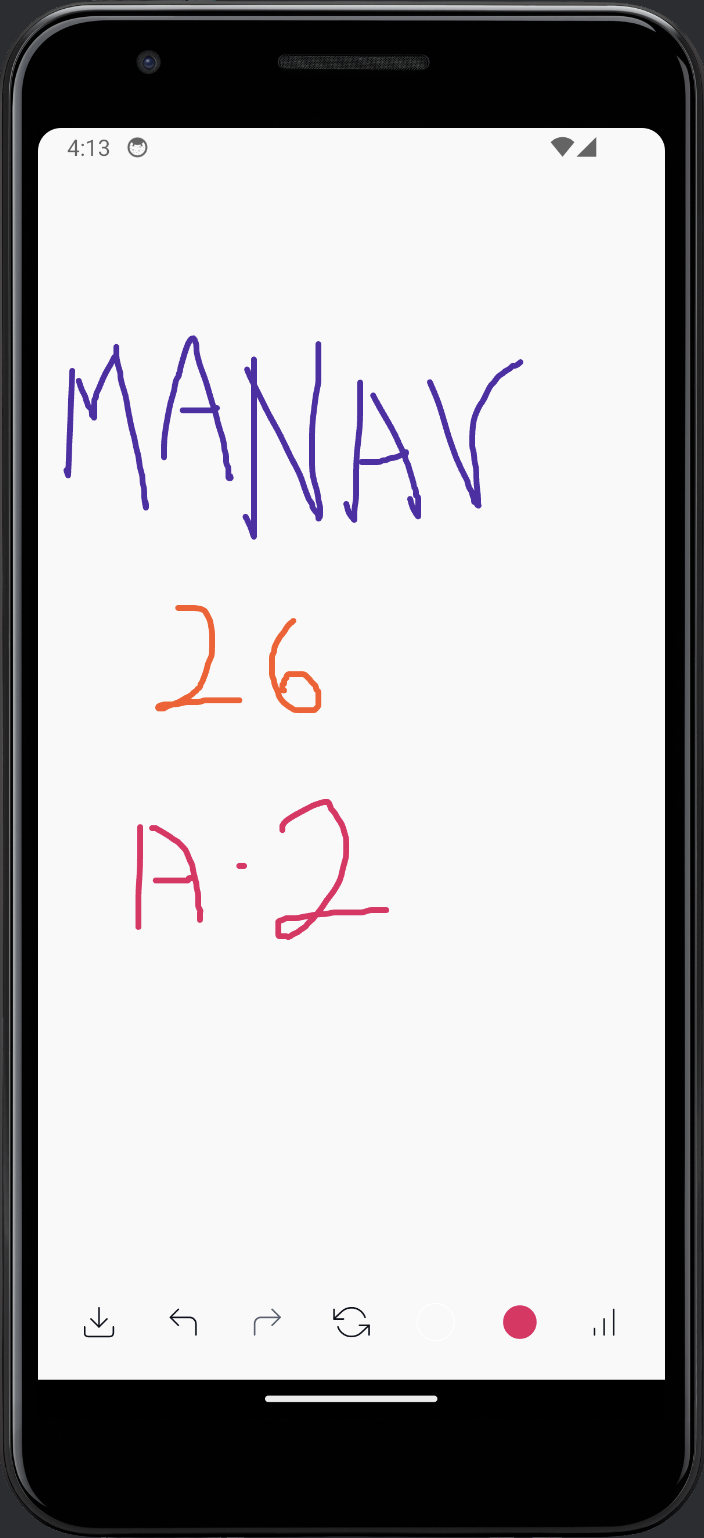 4:13
MANAV
26
A-2